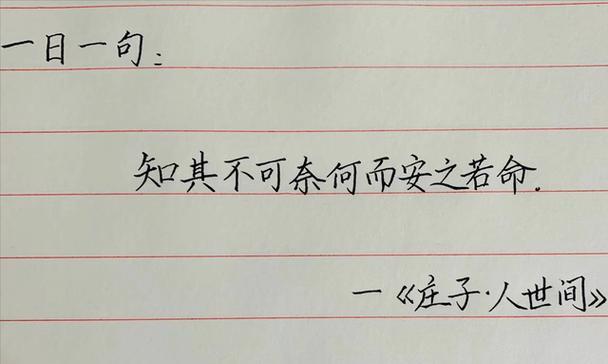 一日一句:
知其不可奈何而安之若命.
—《庄子·人世间》